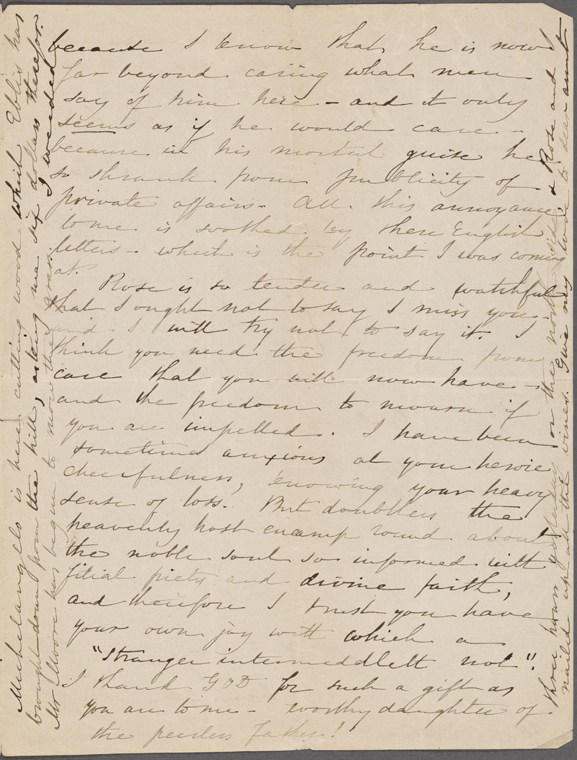 because I know that he is now
far beyond caring what men
say of him here - and it only
seems as if he would care -
because in his mortal guise he
so shrank from publicity of
private affairs. All this annoyance
to me is soothed by these English
letters - which is the point I was coming
at.
Rose is so tender and watchful
that I ought not to say I miss you -
and I will try not to say it. I
think you need the freedom from
care that you will now have -
and the freedom to mourn if
you are impelled. I have been
sometimes anxious at your heroic
cheerfulness, knowing your heavy
sense of loss. But doubtless the
heavenly host encamp round about
the noble soul so informed with
filial piety and divine faith,
and therefore I trust you have
your own joy with which a
"Stranger intermeddleth not".
I thank GOD for such a gift as
you are to me - worthy daughter of
the peerless father!
Michelangelo is here cutting wood which Eblis has
brought down from the hill, asking me six dollars therefor.
Mr Moore has begun to mow the
I needed
three hours
or the
& Rose and I
nailed up all the vines. Give my love to dear aunt